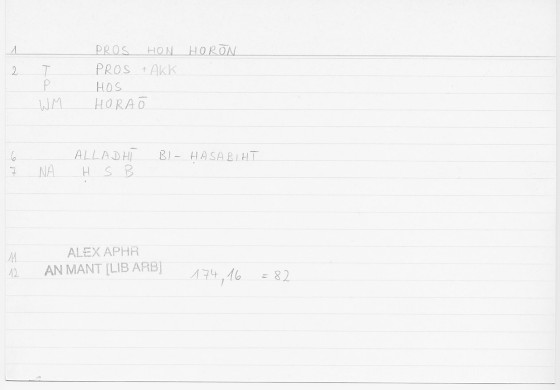 1 PROS HON HORŌN
2 T PROS +AKK
P HOS
WM HORAŌ
6 ALLADHĪ BI-ḤASABIHT
7 NA Ḥ S B
11 ALEX APHR
12 AN MANT [LIB ARB] 174,16 = 82